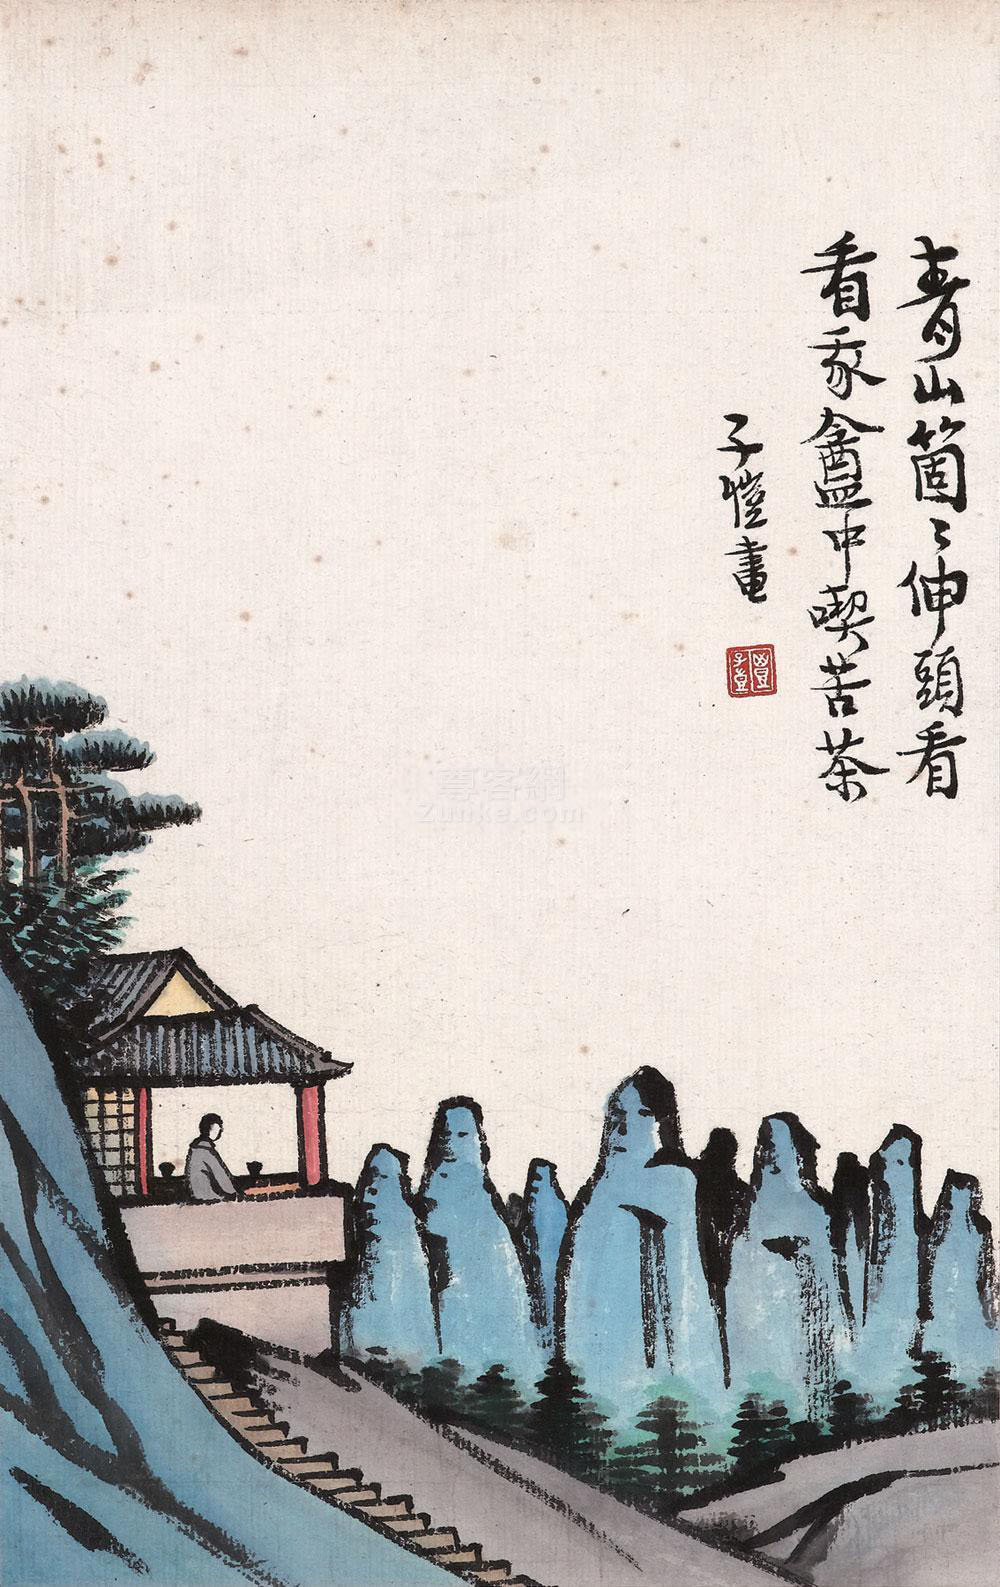 青山箇〻伸頭看
看我盦中喫苦茶
子愷畫
豐子愷
尊客網
zunke.com